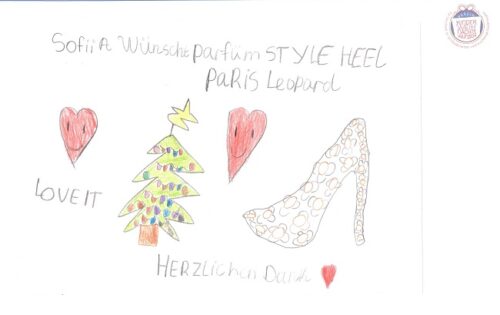 SofiiA Wünsche parfüm STYLE HEEL
PaRiS Leopard
LOVE IT
HERZLichen Dank